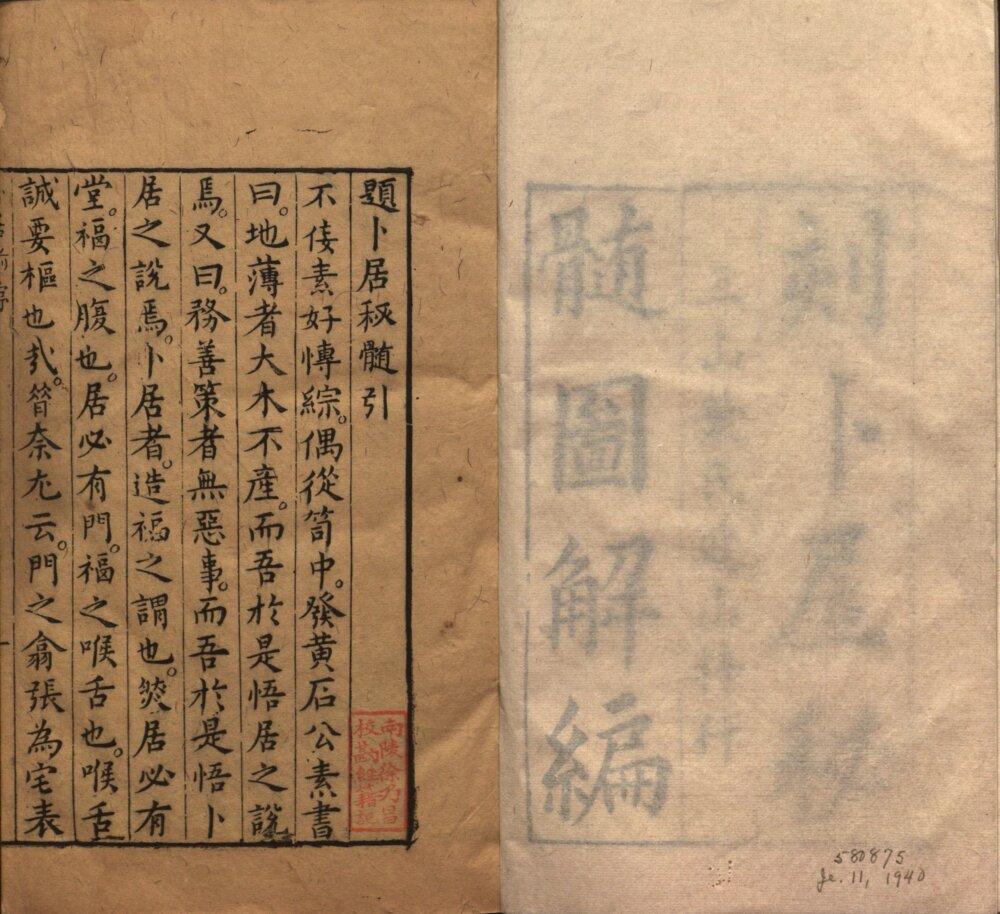 刻卜居
髓圖解編
580875
Je. 11, 1940
題卜居秘髓引
不佞素好愽綜。偶從笥中。發黄石公素書
曰。地薄者大木不產。而吾於是悟居之說
焉。又曰。務善策者無惡事。而吾於是悟卜
居之說焉。卜居者。造福之謂也。然居必有
堂。福之腹也。居必有門。福之喉舌也。喉舌
誠要樞也㢤。奈尤云。門之翕張為宅表
南陵徐乃昌
校勘經籍記